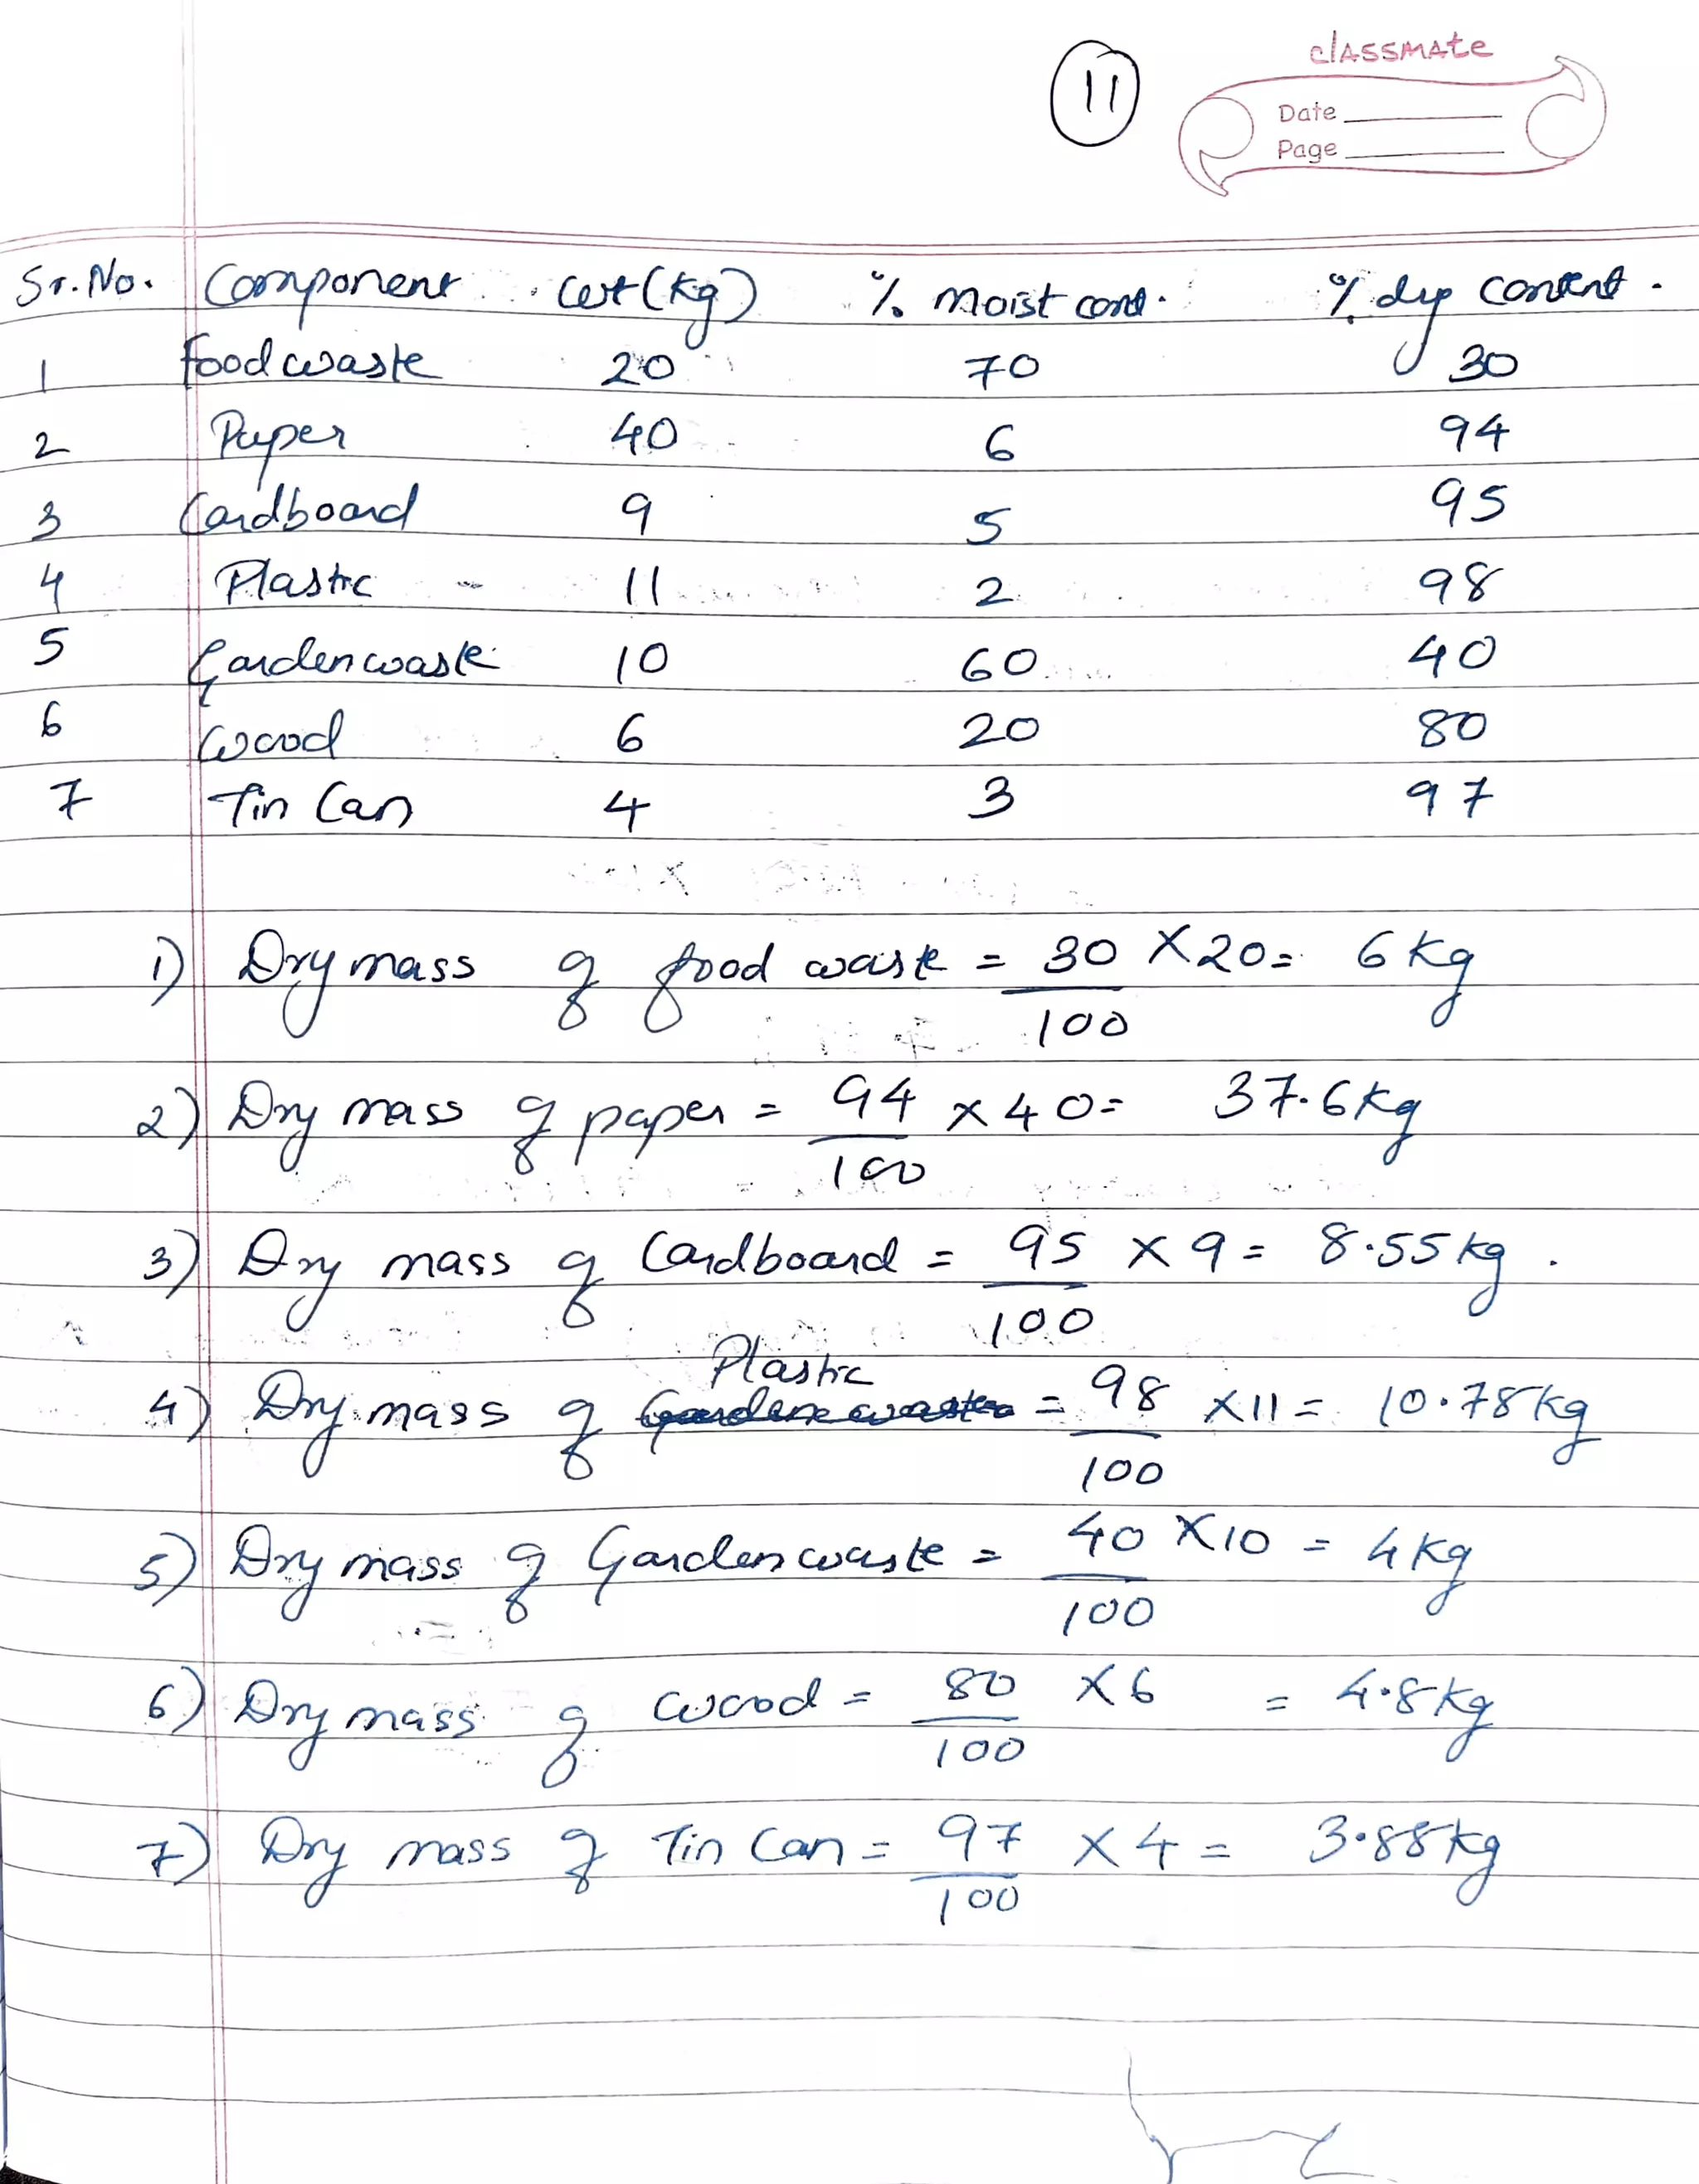 11
classmate
Date
Page
Sr.No. Component wt(kg) % moist cont. % dry content.
1 foodwaste 20 70 30
2 Paper 40 6 94
3 Cardboard 9 5 95
4 Plastic - 11 2 98
5 Gardenwaste 10 60 40
6 wood 6 20 80
7 Tin Can 4 3 97
1) Dry mass of food waste = 30 × 20 = 6 kg
100
2) Dry mass of paper = 94 × 40 = 37.6 kg
100
3) Dry mass of Cardboard = 95 × 9 = 8.55 kg.
100
Plastic
4) Dry mass of Gardene waste = 98 × 11 = 10.78 kg
100
5) Dry mass of Garden waste = 40 × 10 = 4 kg
100
6) Dry mass of wood = 80 × 6 = 4.8 kg
100
7) Dry mass of Tin Can = 97 × 4 = 3.88 kg
100